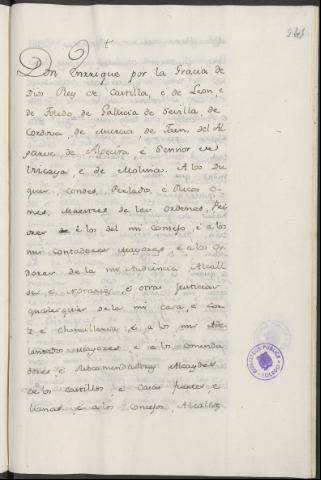 241
Don Enrrique por la Gracia de
Dios Rey de Castilla, é de Leon, é
de Toledo de Gallicia de Sevilla de
Cordova, de Murcia, de Jaen, del Al
garve, de Algecira, é Señor de
Vizcaya, é de Molina. A los Du
ques, Condes, Perlados, é Ricos o-
mes, Maestres de las ordenes, Pri
ores é los del mi Consejo, é a los
mis Contadores Mayores é a los Oy
dores de la mi Audiencia Alcall
des é Notarios é otras Justicias
qualesquier de la mi casa, é Cor
te é Chancilleria, é a los mis Ade
lantados Mayores é a los Comenda
dores, é Subcomendadores Alcaydes
de los castillos, é Casas fuertes, é
llanas, é a los Consejos, Alcalles
BIBLIOTECA PUBLICA
TOLEDO